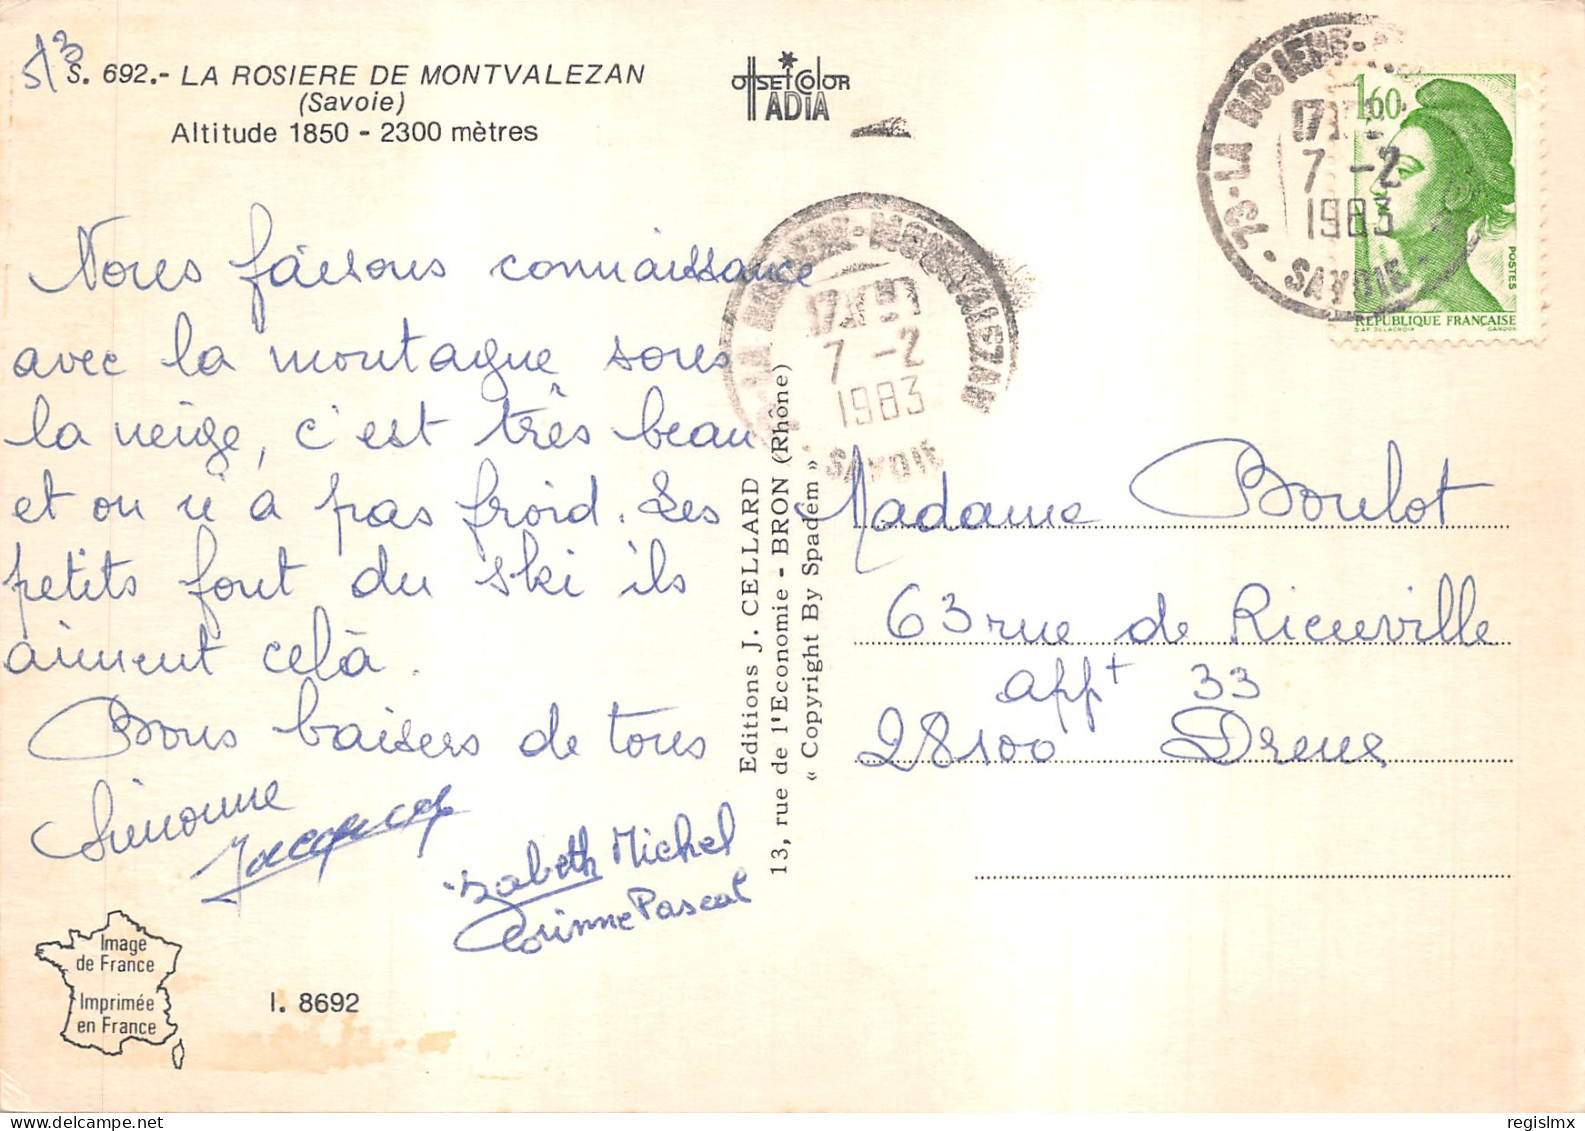 5/3
S. 692.- LA ROSIERE DE MONTVALEZAN
(Savoie)
Altitude 1850 - 2300 mètres
OffSET COlOR
IADIA
Nous faisons connaissance
avec la montagne sous
la neige, c'est très beau
et on n'a pas froid. Les
petits font du ski ils
aiment celà.
Bons baisers de tous
Simonne
Jacques
Izabeth Michel
Corinne Pascal
Image
de France
Imprimée
en France
I. 8692
Editions J. CELLARD
13, rue de l'Economie - BRON (Rhône)
« Copyright By Spadem »
LA ROSIERE-MONTVALEZAN
17H
7 -2
1983
SAVOIE
73-LA ROSIERE-
17H
7 -2
1983
- SAVOIE -
1,60
POSTES
REPUBLIQUE FRANÇAISE
D'AP. DELACROIX
GANDON
Madame Boulot
63 rue de Rieuville
appt 33
28100 Dreux
regislmx